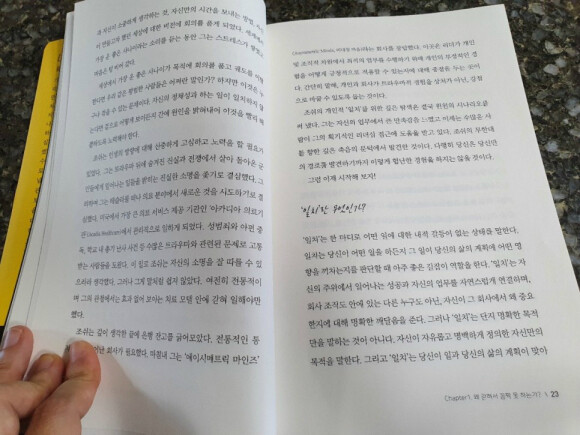 후 자신이 소중하게 생각하는 것, 자신만의 시간을 보내는 방법,
가장 운 좋은 사나이라는 소리를 듣는 동안 그는 스트레스가
마음은 텅 비어 갔다.
세상에서 가장 운 좋은 사나이가 목적에 회의를 품고 궤도를 이탈
한다면 우리 같은 평범한 사람들은 어쩌란 말인가? 하지만 이것은 누
구나 겪을 수 있는 문제이다. 자신의 정체성과 하는 일이 일치하지 않
는다면 겉으로 어떻게 보이든지 간에 원인을 밝혀내어 이것을 빨리 해
결하도록 노력해야 한다.
조쉬는 인생의 방향에 대해 신중하게 고심하고 노력을 할 필요가
있었다. 그는 트라우마 뒤에 숨겨진 진실과 전쟁에서 살아 돌아온 군
인들에게 일어나는 일들을 밝히는 진실한 소명을 좇기로 결심했다. 그
리하여 그는 채굴라를 떠나 의료 분야에서 새로운 것을 시도하기로 결
심했다. 미국에서 가장 큰 의료 서비스 제공 기관인 '아카디아 의료기
관(Acadia Healthcare)'에서 관리직으로 일하게 되었다. 성범죄와 아편 중
독, 학교 내 총기 난사 사건 등 수많은 트라우마와 관련된 문제로 고통
받는 사람들을 도왔다. 이 일도 조쉬는 자신의 소명을 잘 따를 수 있
으리라 생각했다. 그러나 그게 말처럼 쉽지 않았다. 여전히 전통적이
며 그의 관점에서는 효과 없어 보이는 치료 모델 안에 갇혀 일해야만
했다.
조쉬는 깊이 생각한 끝에 은행 잔고를 긁어모았다. 전통적인 틀
회사가 필요했다. 마침내 그는 '메이시매트릭 마인즈'
라는 회사를 창업했다. 이곳은 리더가 개인
및 조직적 차원에서 최적의 업무를 수행하기 위해 개인의 부정적인 경
험을 어떻게 긍정적으로 적용할 수 있는지에 대해 중점을 두는 곳이
다. 간단히 말해, 개인과 회사가 트라우마적 경험을 상처가 아닌, 강점
으로 바꿀 수 있도록 돕는 것이다.
조쉬의 개인적 '일치'를 위한 깊은 탐색은 결국 헌신의 시나리오로
써 냈다. 그는 자신의 업무에서 큰 만족감을 느꼈고 이제는 수많은 사
람이 그의 획기적인 리더십 접근에 도움을 받고 있다. 조쉬의 무한대
를 향한 길은 측음의 문턱에서 발견된 것이다. 다행히 당신은 당신만
의 경로를 발견하기까지 이렇게 험난한 경험을 하지는 않을 것이다.
그럼 이제 시작해 보자!
'일치'란 무엇인가?
'일치'는 한 마디로 어떤 일에 대한 내적 갈등이 없는 상태를 말한다.
일치는 당신이 어떤 일을 하든지 그 일이 당신의 삶의 계획에 어떤 영
향을 끼치는지를 판단할 때 아주 좋은 길잡이 역할을 한다. '일치'는 자
신의 주위에서 일어나는 성공과 자신의 업무를 자연스럽게 연결하며,
회사 조직도 안에 있는 다른 누구도 아닌, 자신이 그 회사에서 왜 중요
한지에 대해 명확한 깨달음을 준다. 그러나 '일치'는 단지 명확한 목적
만을 말하는 것이 아니다. 자신이 자유롭고 명백하게 정의한 자신만의
목적을 말한다. 그리고 '일치'는 당신이 일과 당신의 삶의 계획이 맞아
Chapter1. 왜 안에서 꼼짝 못 하는가? 23